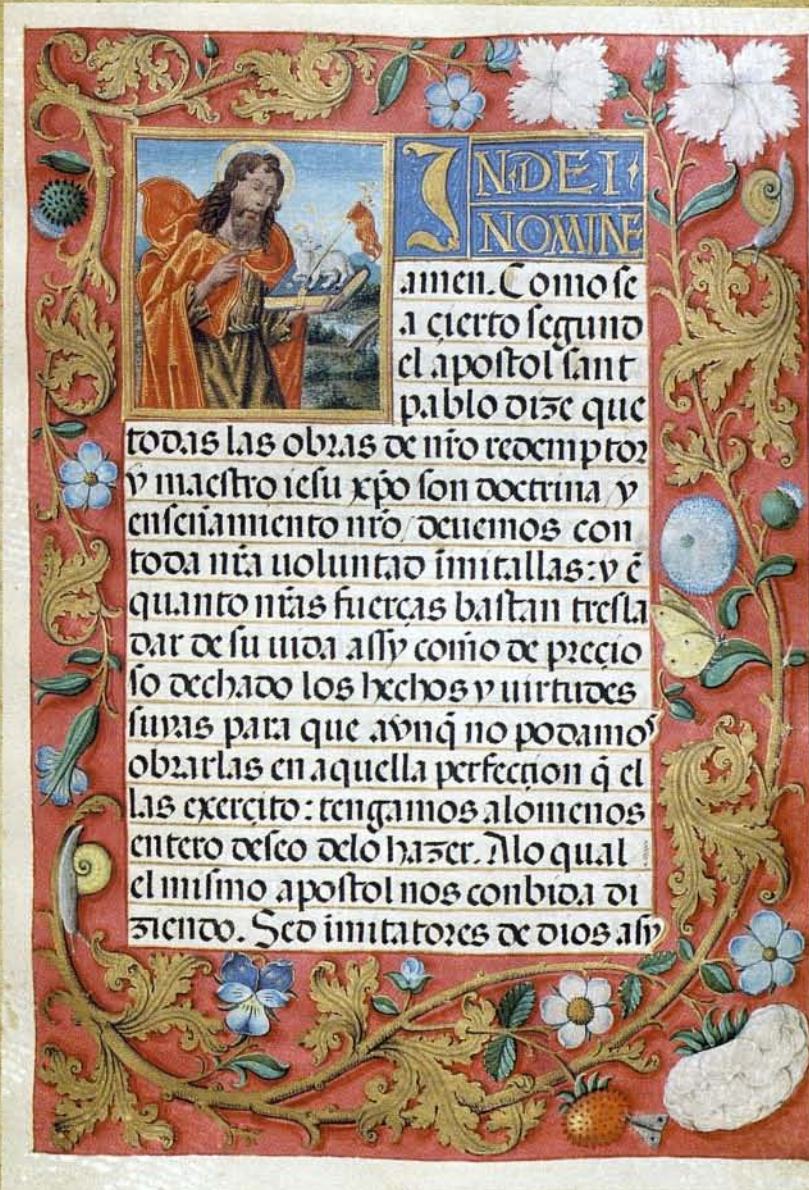 IN·DEI·
NOMINE
amen. Como se
a çierto segund
el apostol sant
pablo dize que
todas las obras de nr̃o redemptor
y maestro iesu xp̃o son doctrina y
enseñamiento nr̃o / deuemos con
toda nr̃a uoluntad ĩmitallas: y ẽ
quanto nr̃as fuerças bastan tresla
dar de su uida assy com̃o de preçio
so dechado los hechos y uirtudes
suyas para que avnq̃ no podamos
obrarlas en aquella perfecçion q̃ el
las exerçito: tengamos alomenos
entero deseo delo hazer. Alo qual
el mismo apostol nos conbida di
ziendo. Sed ĩmitatores de dios asy